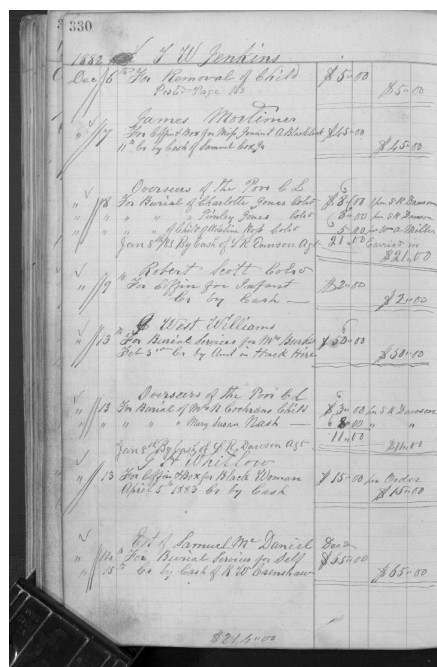 330
1882 T W Jenkins
Dec 6th For Removal of Child $5.00
Posted Page $5.00
James Mortimer
" 7 For Coffin & Box for Miss A Blackburn $45.00
" Co by Cash of Samuel $45.00
Overseers of the Poor C L
" 8 For Burial of Charlotte Jones Cold $8.00 for S R Dawson
" " " Pinley Jones Cold 8.00 for S R Dawson
" " " of Child of Cold 5.00 for Wm A Miller
Jany 8th 1883 By Cash of S R Dawson Agt 21.00 Carried in
$21.00
Robert Scott Cold
" 9th For Coffin for Infant $2.00
Co by Cash — $2.00
G West Williams
" 13th For Burial Services for Mrs Burks $50.00
Feb 3rd Co by Amt in Hack Hire $50.00
Overseers of the Poor C L
" 13 For Burial of Mrs R Cochrans Child $3.00 for S R Dawson
" " " " Mary Susan Nash — 8.00 " "
11.00
Jany 8th By Cash of S R Dawson Agt $11.00
Whitlow
" 13 For Coffin & Box for Black Woman $15.00 for Order
April 5th 1883 Co by Cash $15.00
Est of Samuel Mc Daniel Decd
" 14th For Burial Services for Self $65.00
" 15" Co by Cash of R W Crenshaw $65.00
$214.00